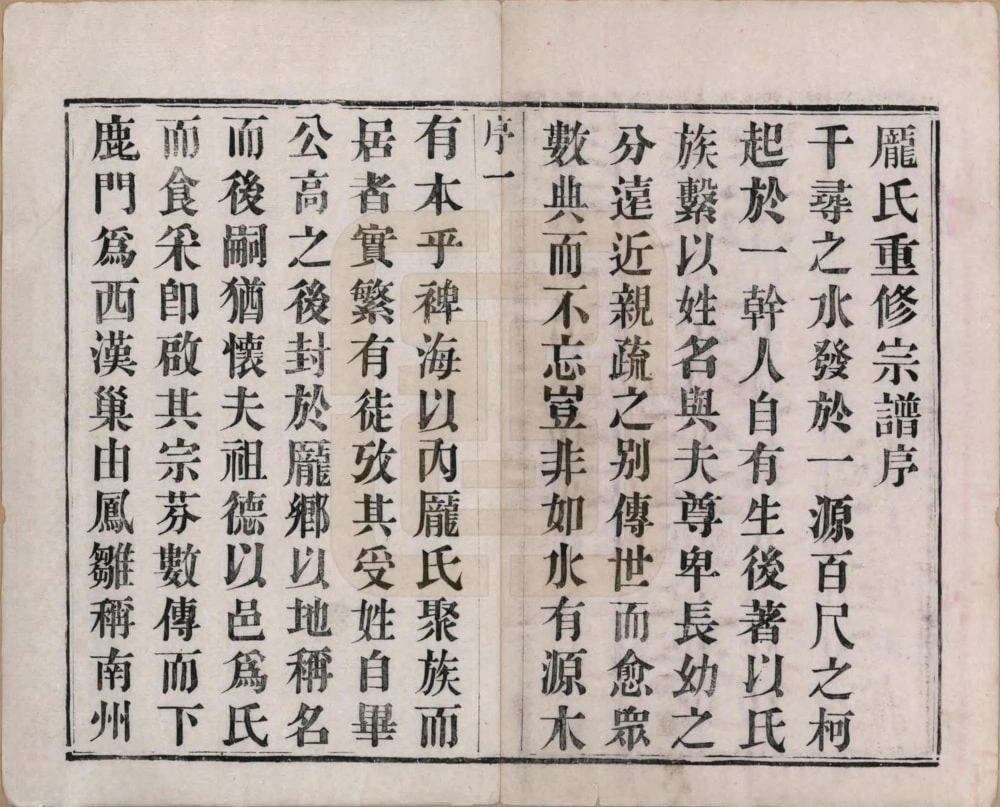 龐氏重修宗譜序
千尋之水發於一源百尺之柯
起於一幹人自有生後著以氏
族繫以姓名與夫尊卑長幼之
分遠近親疏之别傳世而愈眾
數典而不忘豈非如水有源木
序一
有本乎裨海以內龐氏聚族而
居者實繁有徒攷其受姓自畢
公高之後封於龐鄉以地稱名
而後嗣猶懷夫祖德以邑爲氏
而食采卽啟其宗芬數傳而下
鹿門爲西漢巢由鳳雛稱南州